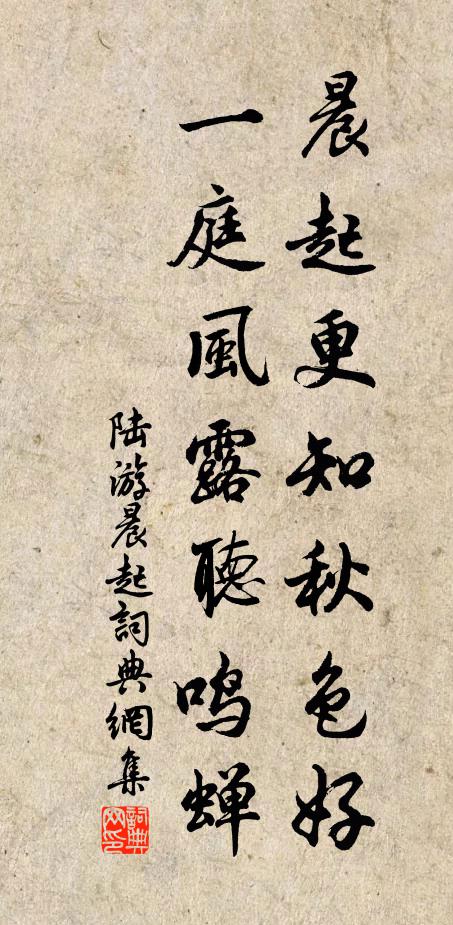 晨起更知秋色好
一庭風露聽鳴蝉
陆游晨起詞典網集
詞典
网印